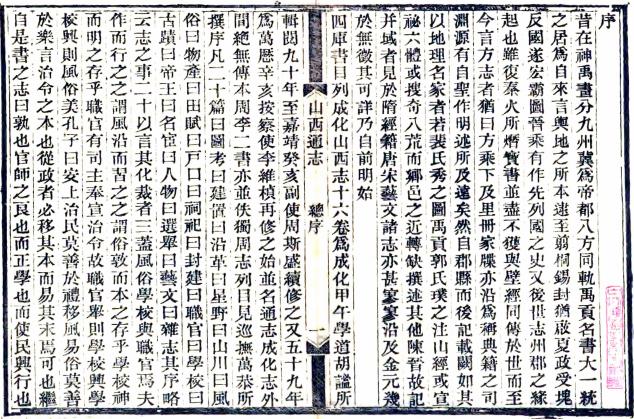 序
昔在神禹畫分九州冀爲帝都八方同軌禹貢名書大一統
之居爲自來言輿地之所本逮至翦桐錫封猶啟夏政受塊
反國遂宏霸圖晉乘有作先列國之史又後世志州郡之緣
起也雖復秦火所燔寶書並盡不獲與壁經同傳於世而至
今言方志者猶曰方乘下及里冊家牒亦沿爲稱典籍之司
淵源有自聖作明述所及遠矣然自郡縣而後記載闕如其
以地理名家者若裴氏秀之圖禹貢郭氏璞之注山經或宣
祕六體或搜奇八荒而鄉邑之近轉缺撰述其他陳晉故記
并域者見於隋經籍唐宋藝文諸志亦甚寥寥沿及金元幾
於無徵其可詳乃自前明始
四庫書目列成化山西志十六卷爲成化甲午學道胡謐所
山西通志
總序
一
輯閱九十年至嘉靖癸亥副使周斯盛續修之又五十九年
爲萬歷辛亥按察使李維楨再修之始並名通志成化志外
間絶無傳本周李二書亦並佚獨周志列目見巡撫萬恭所
撰序凡二十篇曰圖考曰建置曰沿革曰星野曰山川曰風
俗曰物產曰田賦曰戶口曰祠祀曰封建曰職官曰學校曰
古蹟曰帝王曰名宦曰人物曰選舉曰藝文曰雜志其序略
云志之事二十以言其化裁者三蓋風俗學校與職官焉夫
作而行之之謂風沿而習之之謂俗敎而本之存乎學校神
而明之存乎職官有司主奉宣治令故職官舉則學校興學
校興則風俗美孔子曰安上治民莫善於禮移風易俗莫善
於樂言治令之本也從政者必移其本而易其末焉可也繼
自是書之志曰孰也官師之良也而正學也而使民興行也